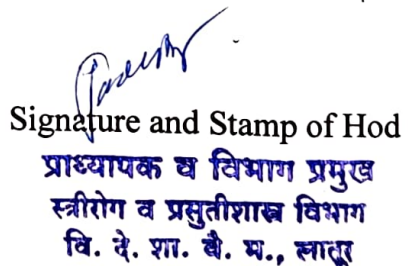 Signature and Stamp of Hod
प्राध्यापक व विभाग प्रमुख
स्त्रीरोग व प्रसुतीशास्त्र विभाग
वि. दे. शा. वै. म., लातूर